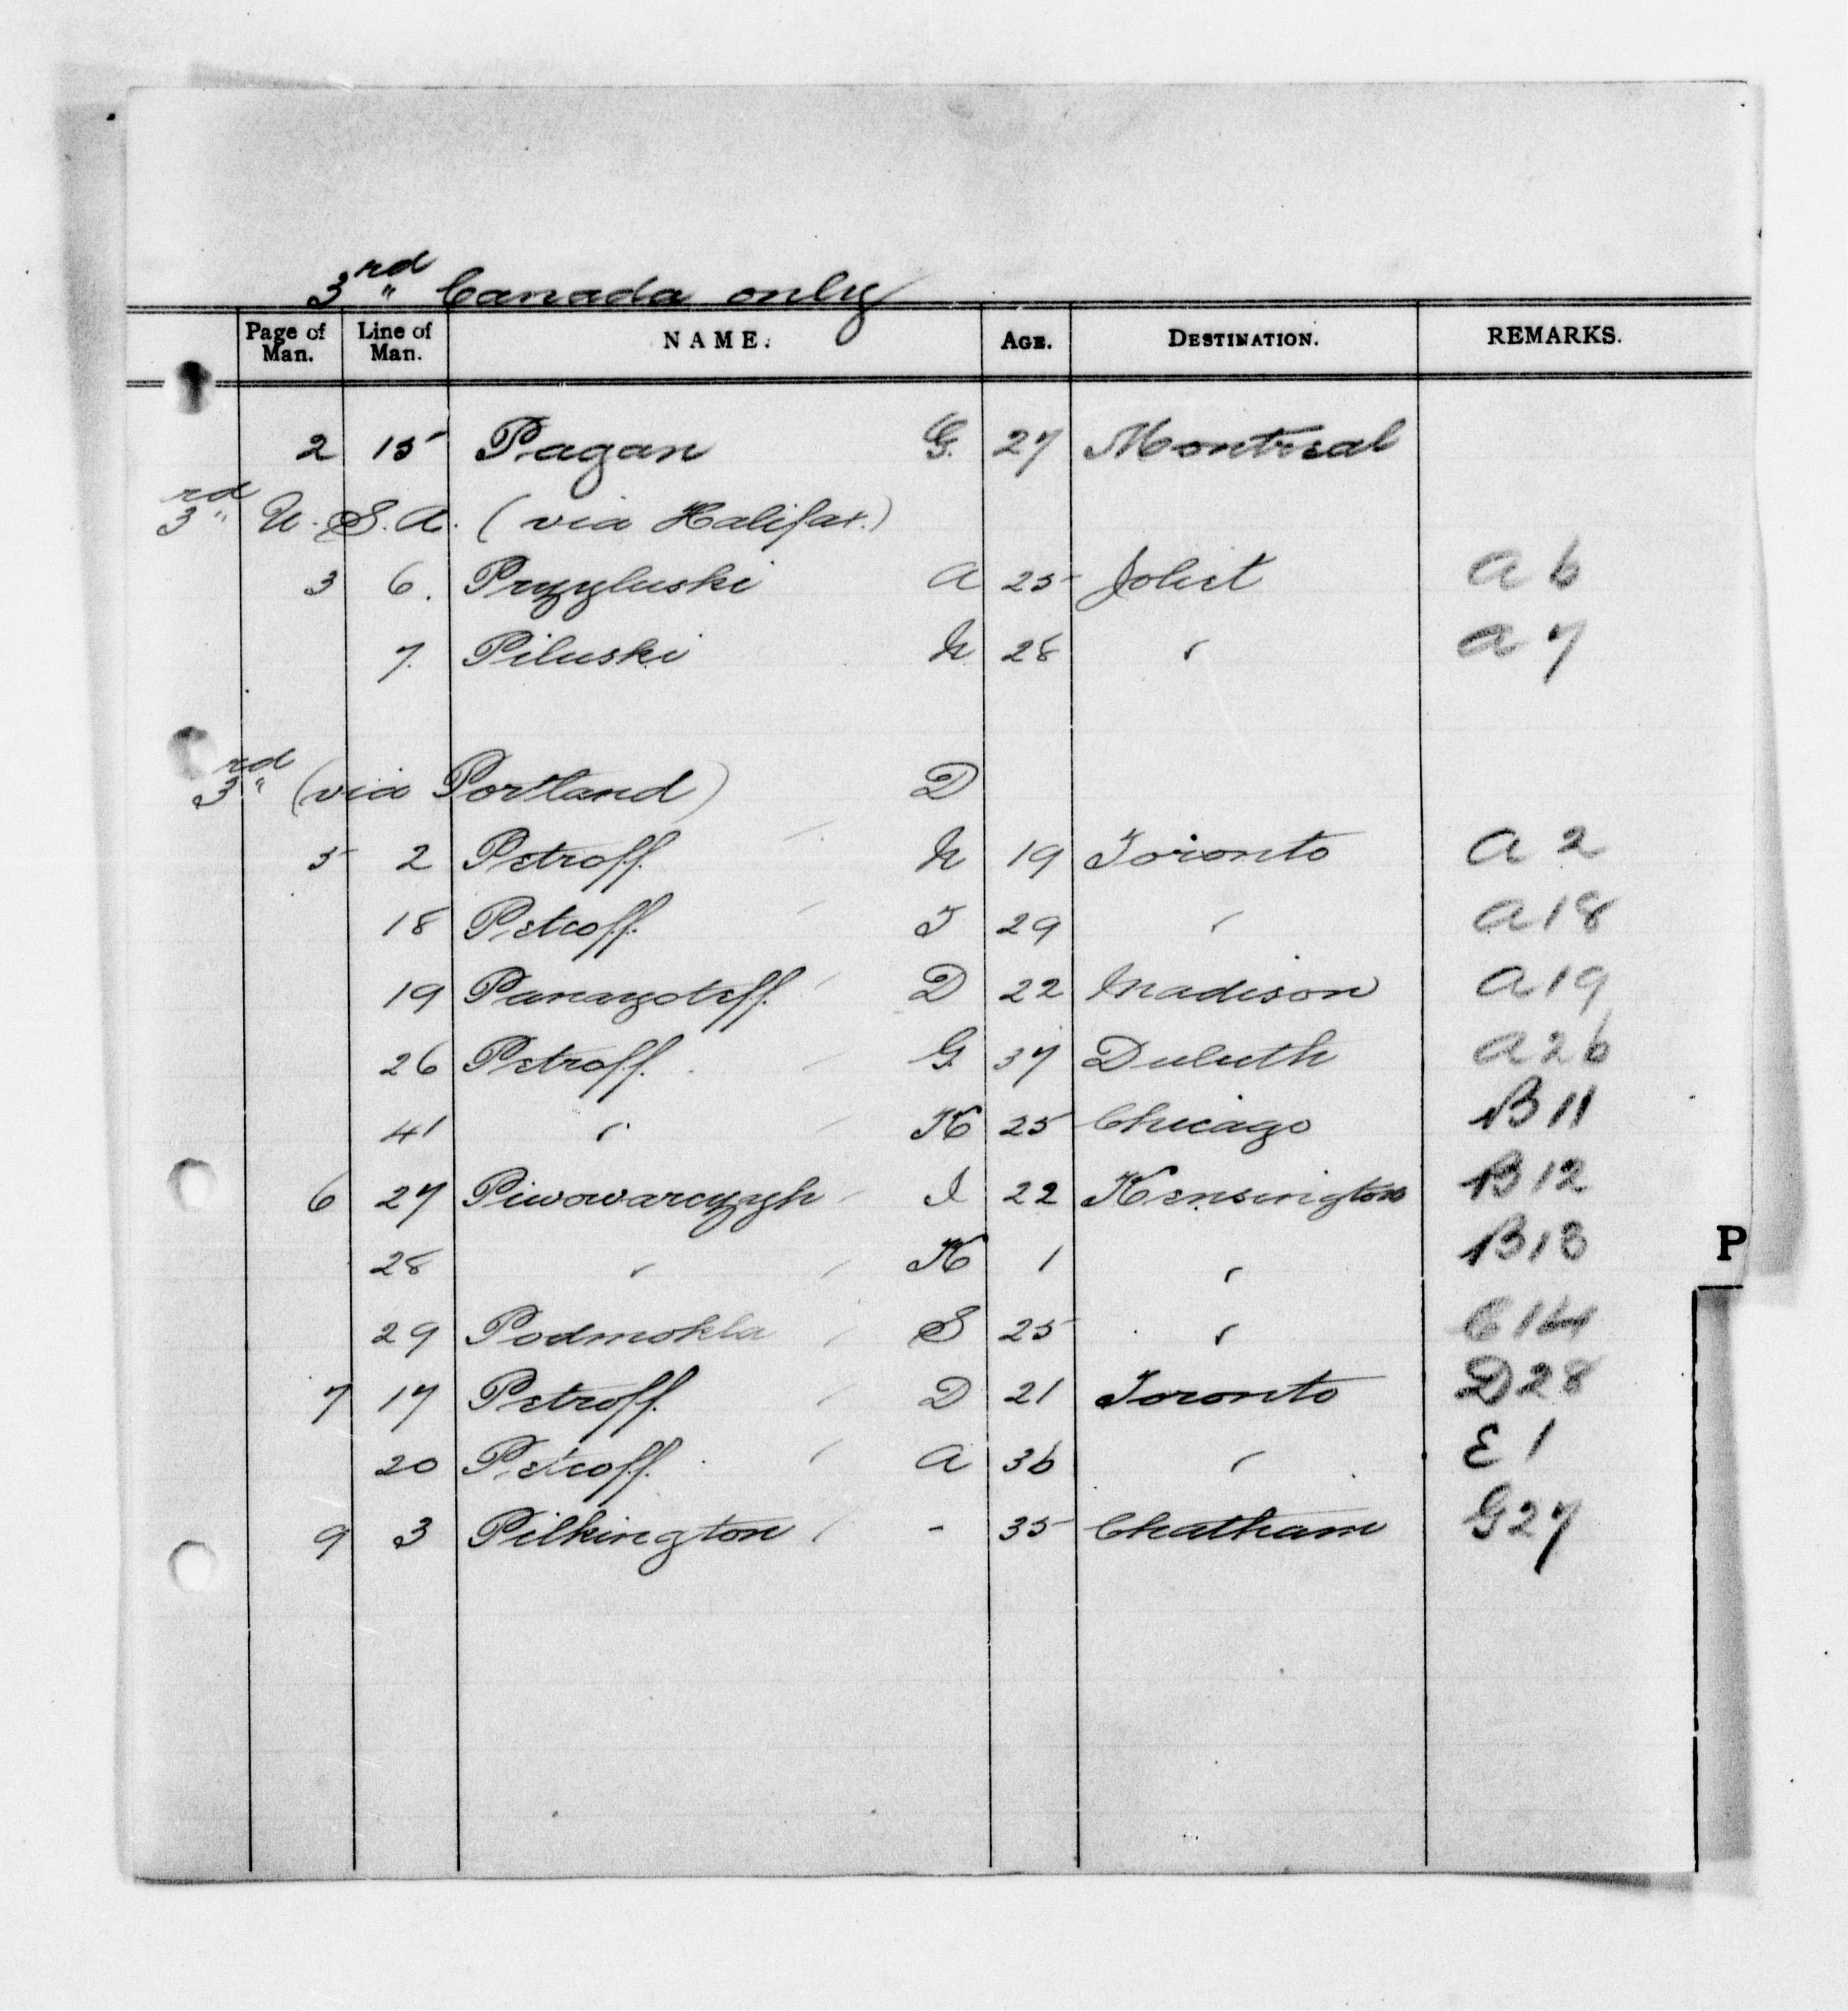 3rd " Canada only
Page of Man. Line of Man. NAME. AGE. DESTINATION. REMARKS.
2 15 Pagan G. 27 Montreal
3rd " U.S.A. (via Halifax.)
3 6. Pryzyluski A 25 Joliet A 6
7. Piluski N 28 " A 7
3rd " (via Portland) D
5 2 Petroff. N 19 Toronto A 2
18 Petcoff. T 29 " A 18
19 Panayoteff. D 22 Madison A 19
26 Petroff. G 37 Duluth A 26
41 " K 25 Chicago B 11
6 27 Piwowarczygh I 22 Kensington B 12
28 " K 1 " B 13
29 Podmokla S 25 " C 14
7 17 Petroff. D 21 Toronto D 28
20 Petcoff. A 36 " E 1
9 3 Pilkington - 35 Chatham G 27
P